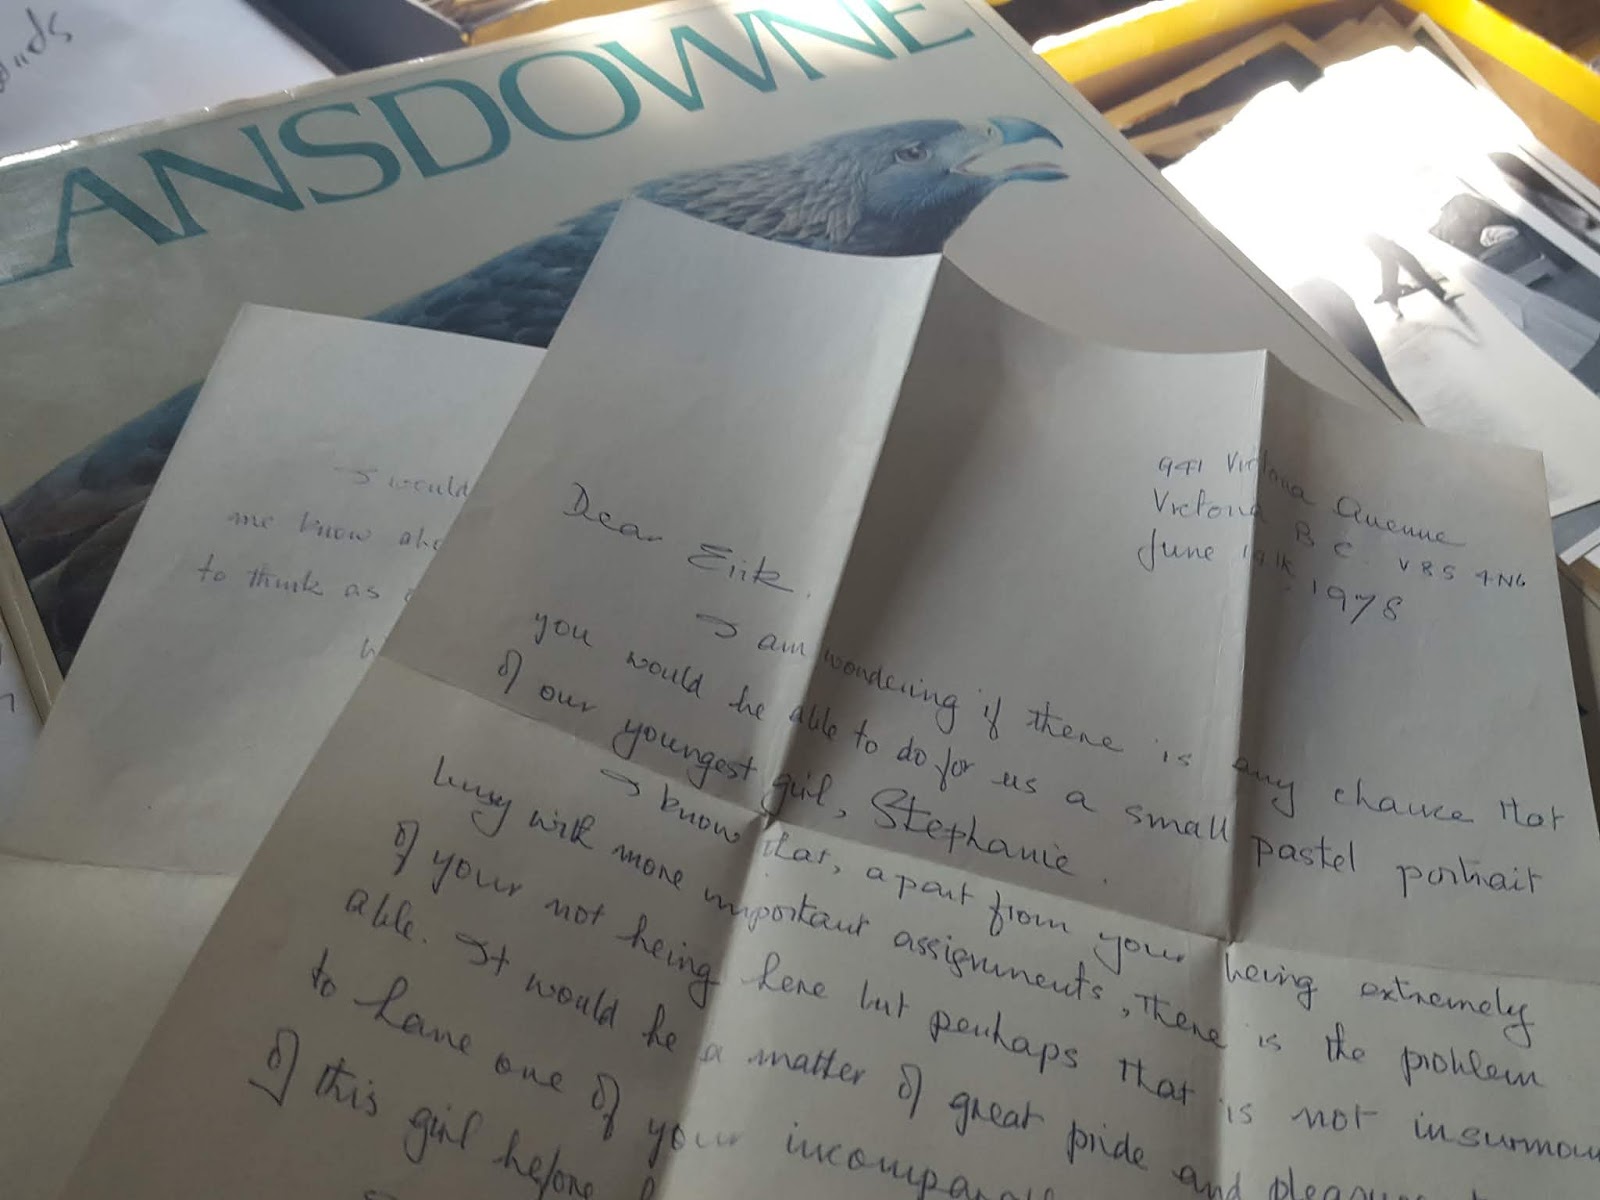 ANSDOWNE
I would
me know
to think as
941 Victoria Avenue
Victoria B C V8S 4N6
June 19th 1978
Dear Erik.
I am wondering if there is any chance that
you would be able to do for us a small pastel portrait
of our youngest girl, Stephanie.
I know that, apart from your being extremely
busy with more important assignments, there is the problem
of your not being here but perhaps that is not insurmount
able. It would be a matter of great pride and pleasure
to have one of your
of this girl before